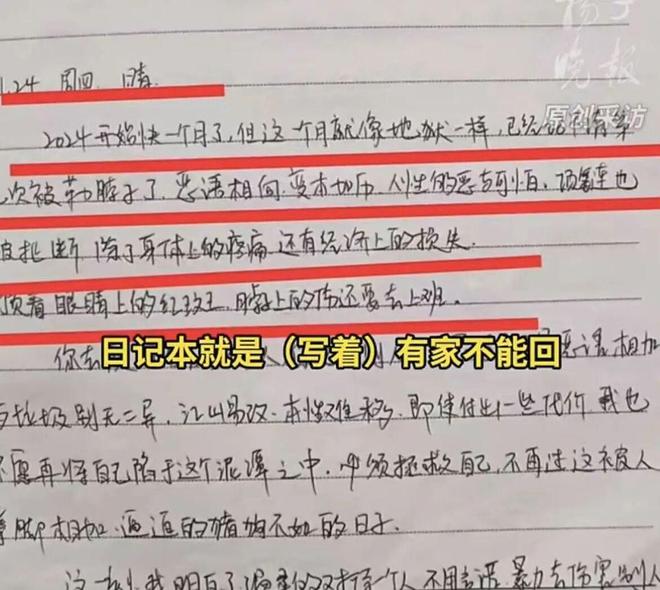 扬子
晚报
原创采访
1.24 周四 晴
2024开始快一个月了,但这一个月就像地狱一样,已经记不清第
次被勒脖子了。恶语相向、变本加厉、人性的恶与可怕。项链也
被扯断 除了身体上的疼痛 还有经济上的损失。
顶着眼睛上的红玟王,脖子上的伤还要去上班。
日记本就是（写着）有家不能回
你去
恶语相加
与垃圾别无二异,江山易改,本性难移,即使付出一些代价 我也
不愿再将自己陷于这个泥潭之中,必须拯救自己,不再过这被人
拳脚相加、逼迫的猪狗不如的日子。
这一刻,我明白了,
对待一个人 不用言语、暴力去伤害别人